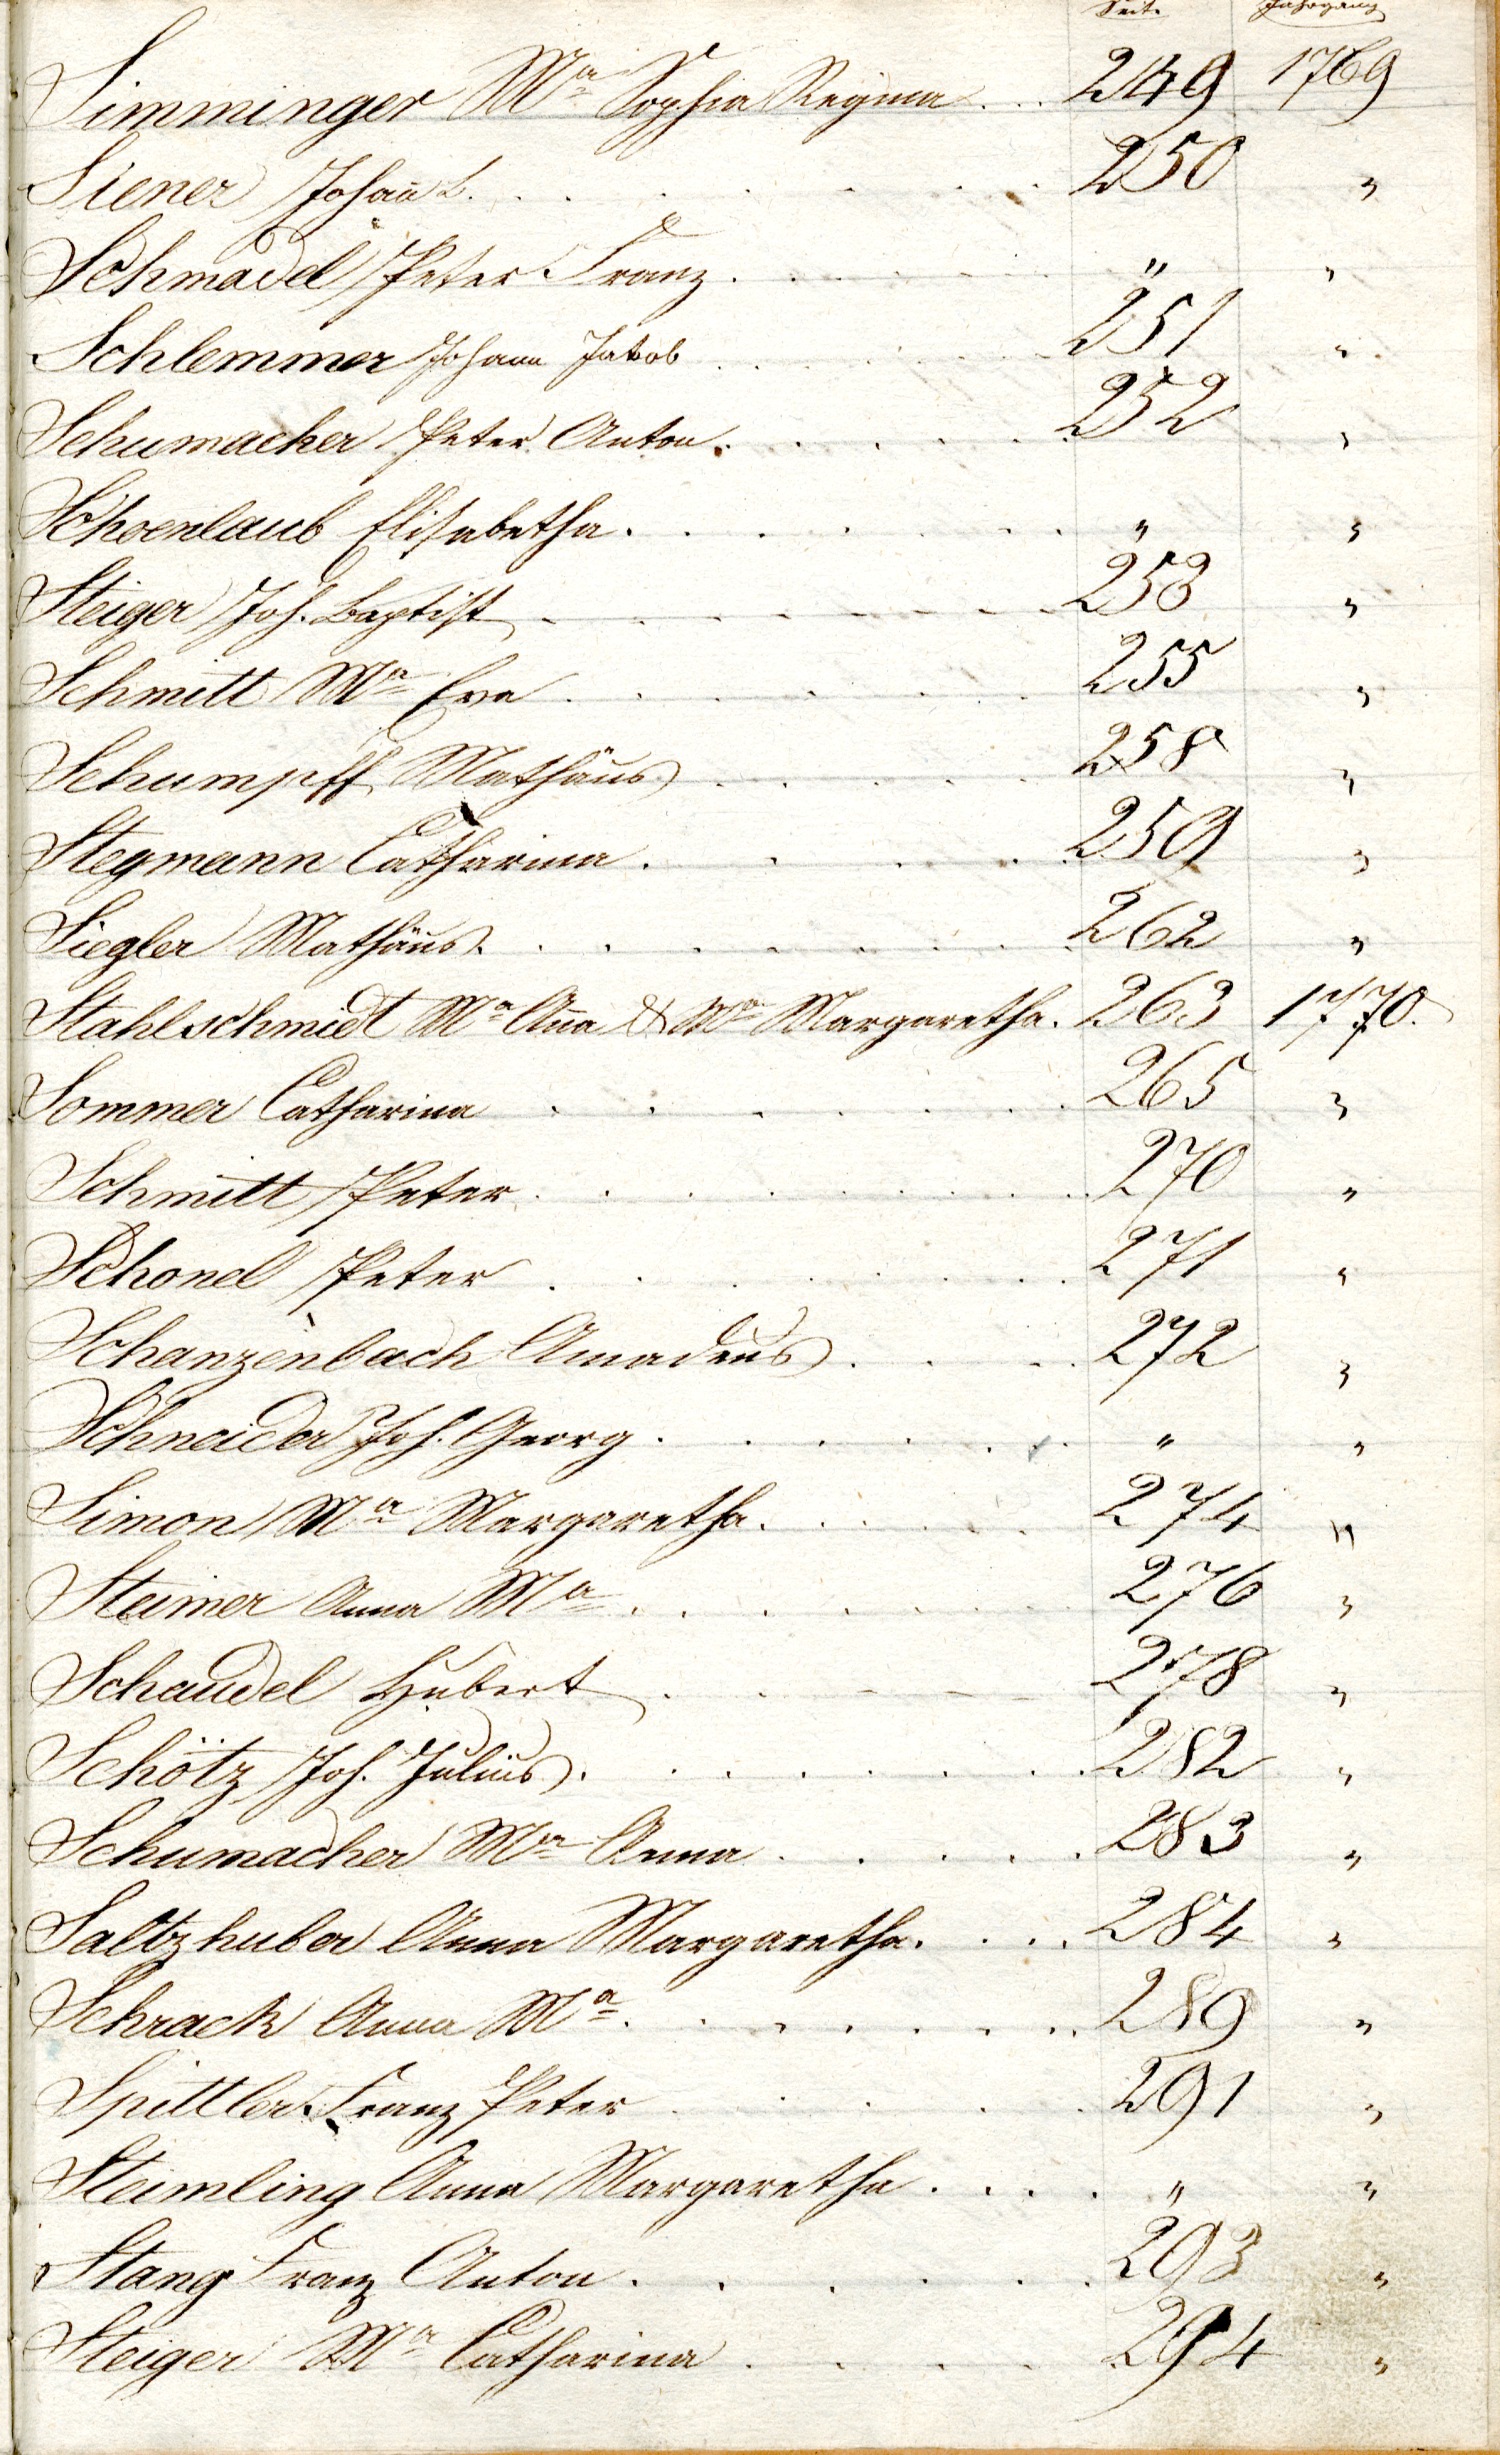 Seite Jahrgang
Simminger Mª Sophia Regina . . . 249 1769
Siener Johañ B. . . . . . . . 250 "
Schmadel Peter Franz . . . . . . " "
Schlemmer Johann Jakob . . . . . . 251 "
Schumacher Peter Anton . . . . . . 252 "
Schoenlaub Elisabetha . . . . . . . " "
Steiger Joh. Baptist . . . . . . . . 253 "
Schmitt Mª Eva . . . . . . . 255 "
Schumpff Mathäus . . . . . 258 "
Stegmann Catharina . . . . . 259 "
Siegler Mathäus . . . . . . . . 262 "
Stahlschmidt Mª Aña & Mª Margaretha . 263 1770.
Sommer Catharina . . . . . . . 265 "
Schmitt Peter . . . . . . . . 270 "
Schonel Peter . . . . . . . 271 "
Schanzenbach Amadeus . . . 272 "
Schneider Joh. Georg . . . . . . . " "
Simon Mª Margaretha . . . . . 274 "
Steimer Anna Mª . . . . . . . 276 "
Schaudel Hubert . . . . . . 278 "
Schötz Joh. Julius . . . . . . . . 282 "
Schumacher Mª Anna . . . . . 283 "
Saltzhuber Anna Margaretha . . . . 284 "
Schrack Anna Mª . . . . . . . . 289 "
Spittler Franz Peter . . . . . 291 "
Steimling Anna Margaretha . . . . " "
Stang Franz Anton . . . . . . 293 "
Steiger Mª Catharina . . . . . 294 "